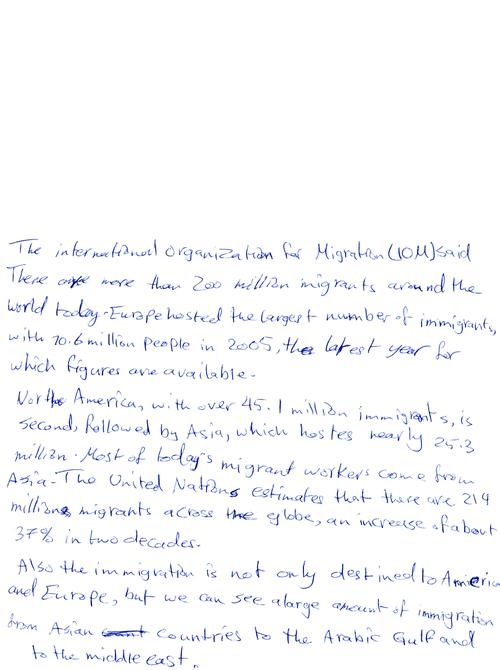 The international organization for Migration (IOM) said
There are more than 200 million migrants around the
world today. Europe hosted the largest number of immigrants,
with 70.6 million people in 2005, the latest year for
which figures are available.
North America, with over 45.1 million immigrants, is
second, followed by Asia, which hostes nearly 25.3
million. Most of today's migrant workers come from
Asia. The United Nations estimates that there are 214
millions migrants across the globe, an increase of about
37% in two decades.
Also the immigration is not only destined to America
and Europe, but we can see a large amount of immigration
from Asian countries to the Arabic Gulf and
to the middle east.